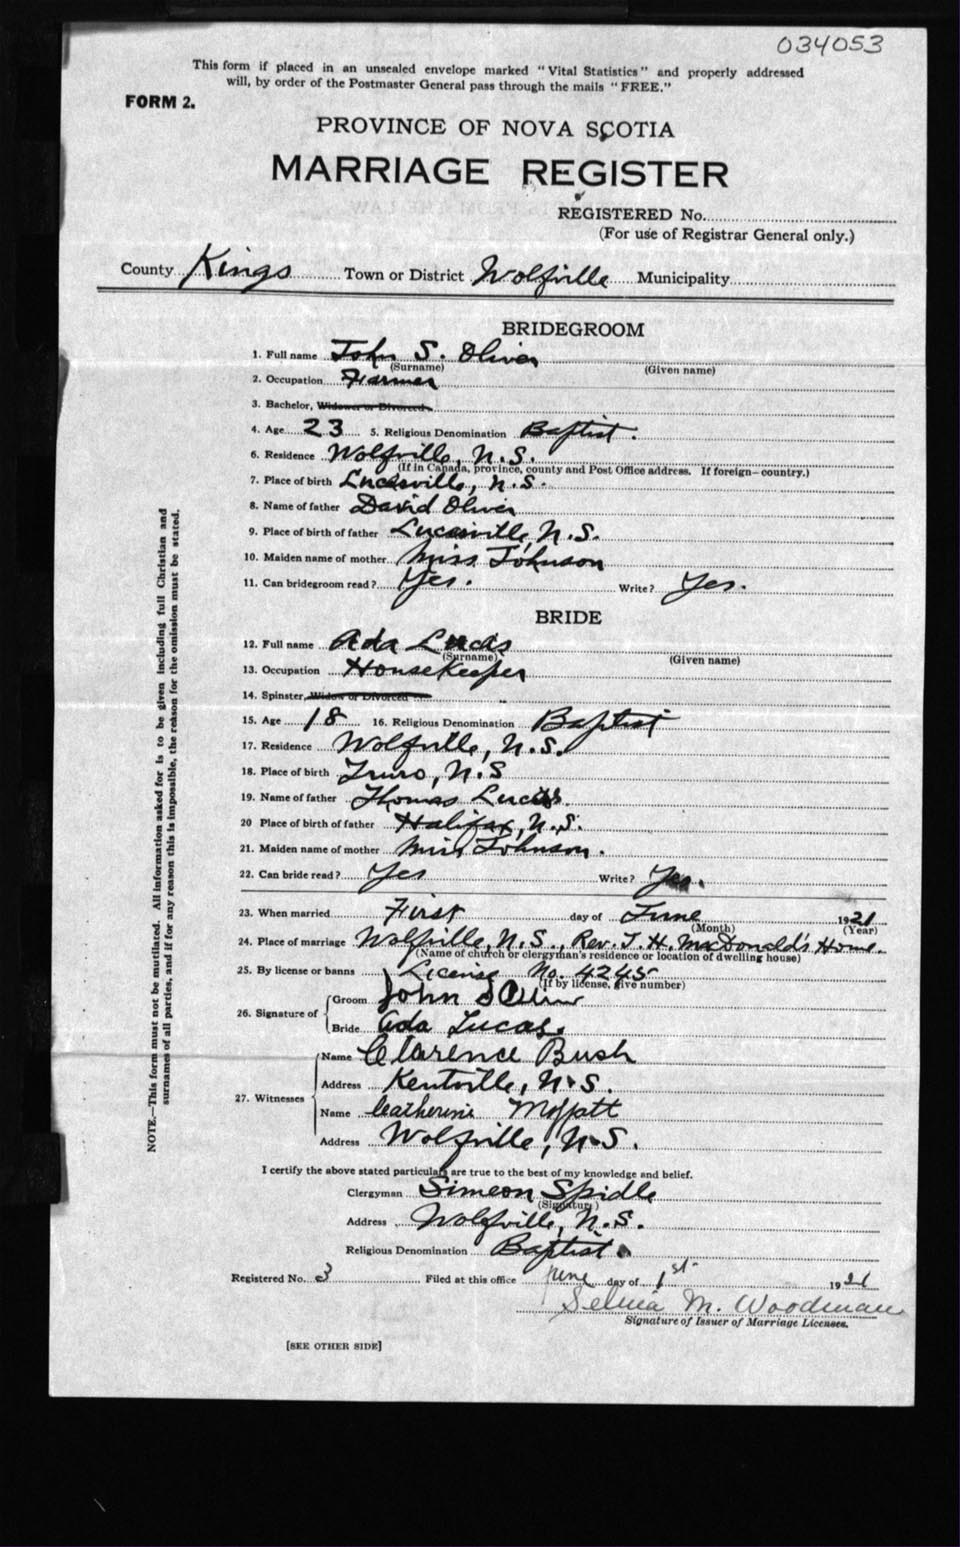 034053
This form if placed in an unsealed envelope marked "Vital Statistics" and properly addressed
will, by order of the Postmaster General pass through the mails "FREE."
FORM 2.
PROVINCE OF NOVA SCOTIA
MARRIAGE REGISTER
REGISTERED No.
(For use of Registrar General only.)
County Kings Town or District Wolfville Municipality
BRIDEGROOM
1. Full name John S. Oliver
(Surname) (Given name)
2. Occupation Farmer
3. Bachelor, Widower or Divorced
4. Age 23 5. Religious Denomination Baptist.
6. Residence Wolfville, N.S.
(If in Canada, province, county and Post Office address. If foreign—country.)
7. Place of birth Lucasville, N.S.
8. Name of father David Oliver
9. Place of birth of father Lucasville, N.S.
10. Maiden name of mother Miss Johnson
11. Can bridegroom read? Yes. Write? Yes.
BRIDE
12. Full name Ada Lucas
(Surname) (Given name)
13. Occupation Housekeeper
14. Spinster, Widow or Divorced
15. Age 18 16. Religious Denomination Baptist
17. Residence Wolfville, N.S.
18. Place of birth Truro, N.S
19. Name of father Thomas Lucas.
20 Place of birth of father Halifax, N.S.
21. Maiden name of mother Miss Johnson.
22. Can bride read? Yes Write? Yes.
23. When married First day of June 1921
(Month) (Year)
24. Place of marriage Wolfville, N.S., Rev. J. H. MacDonald's Home.
(Name of church or clergyman's residence or location of dwelling house)
25. By license or banns License No. 4245
(If by license, give number)
26. Signature of
Groom John S Oliver
Bride Ada Lucas.
27. Witnesses
Name Clarence Bush
Address Kentville, N.S.
Name Catherine Moffatt
Address Wolfville, N.S.
I certify the above stated particulars are true to the best of my knowledge and belief.
Clergyman Simeon Spidle
(Signature)
Address Wolfville, N.S.
Religious Denomination Baptist.
Registered No. 3 Filed at this office June day of 1st 1921
M. Woodman
Signature of Issuer of Marriage Licenses.
[SEE OTHER SIDE]
NOTE.—This form must not be mutilated. All information asked for is to be given including full Christian and
surnames of all parties, and if for any reason this is impossible, the reason for the omission must be stated.